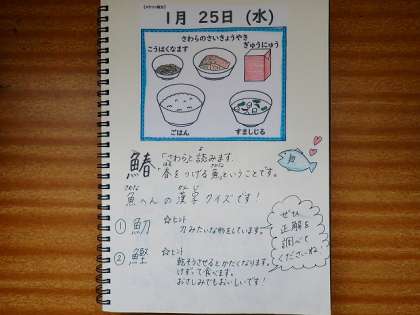 1月 25日 (水)
さわらのさいきょうやき
こうはくなます
ぎゅうにゅう
ごはん
すましじる
鰆 「さわら」と読みます。
「春をつげる魚」ということです。
魚へんの漢字クイズです!
① 魛 ☆ヒント
刀みたいな形をしています。
② 鰹 ☆ヒント
乾そうさせるとかたくなります。
けずって食べます。
おさしみでもおいしいです!
ぜひ
正解を
調べて
くださいね